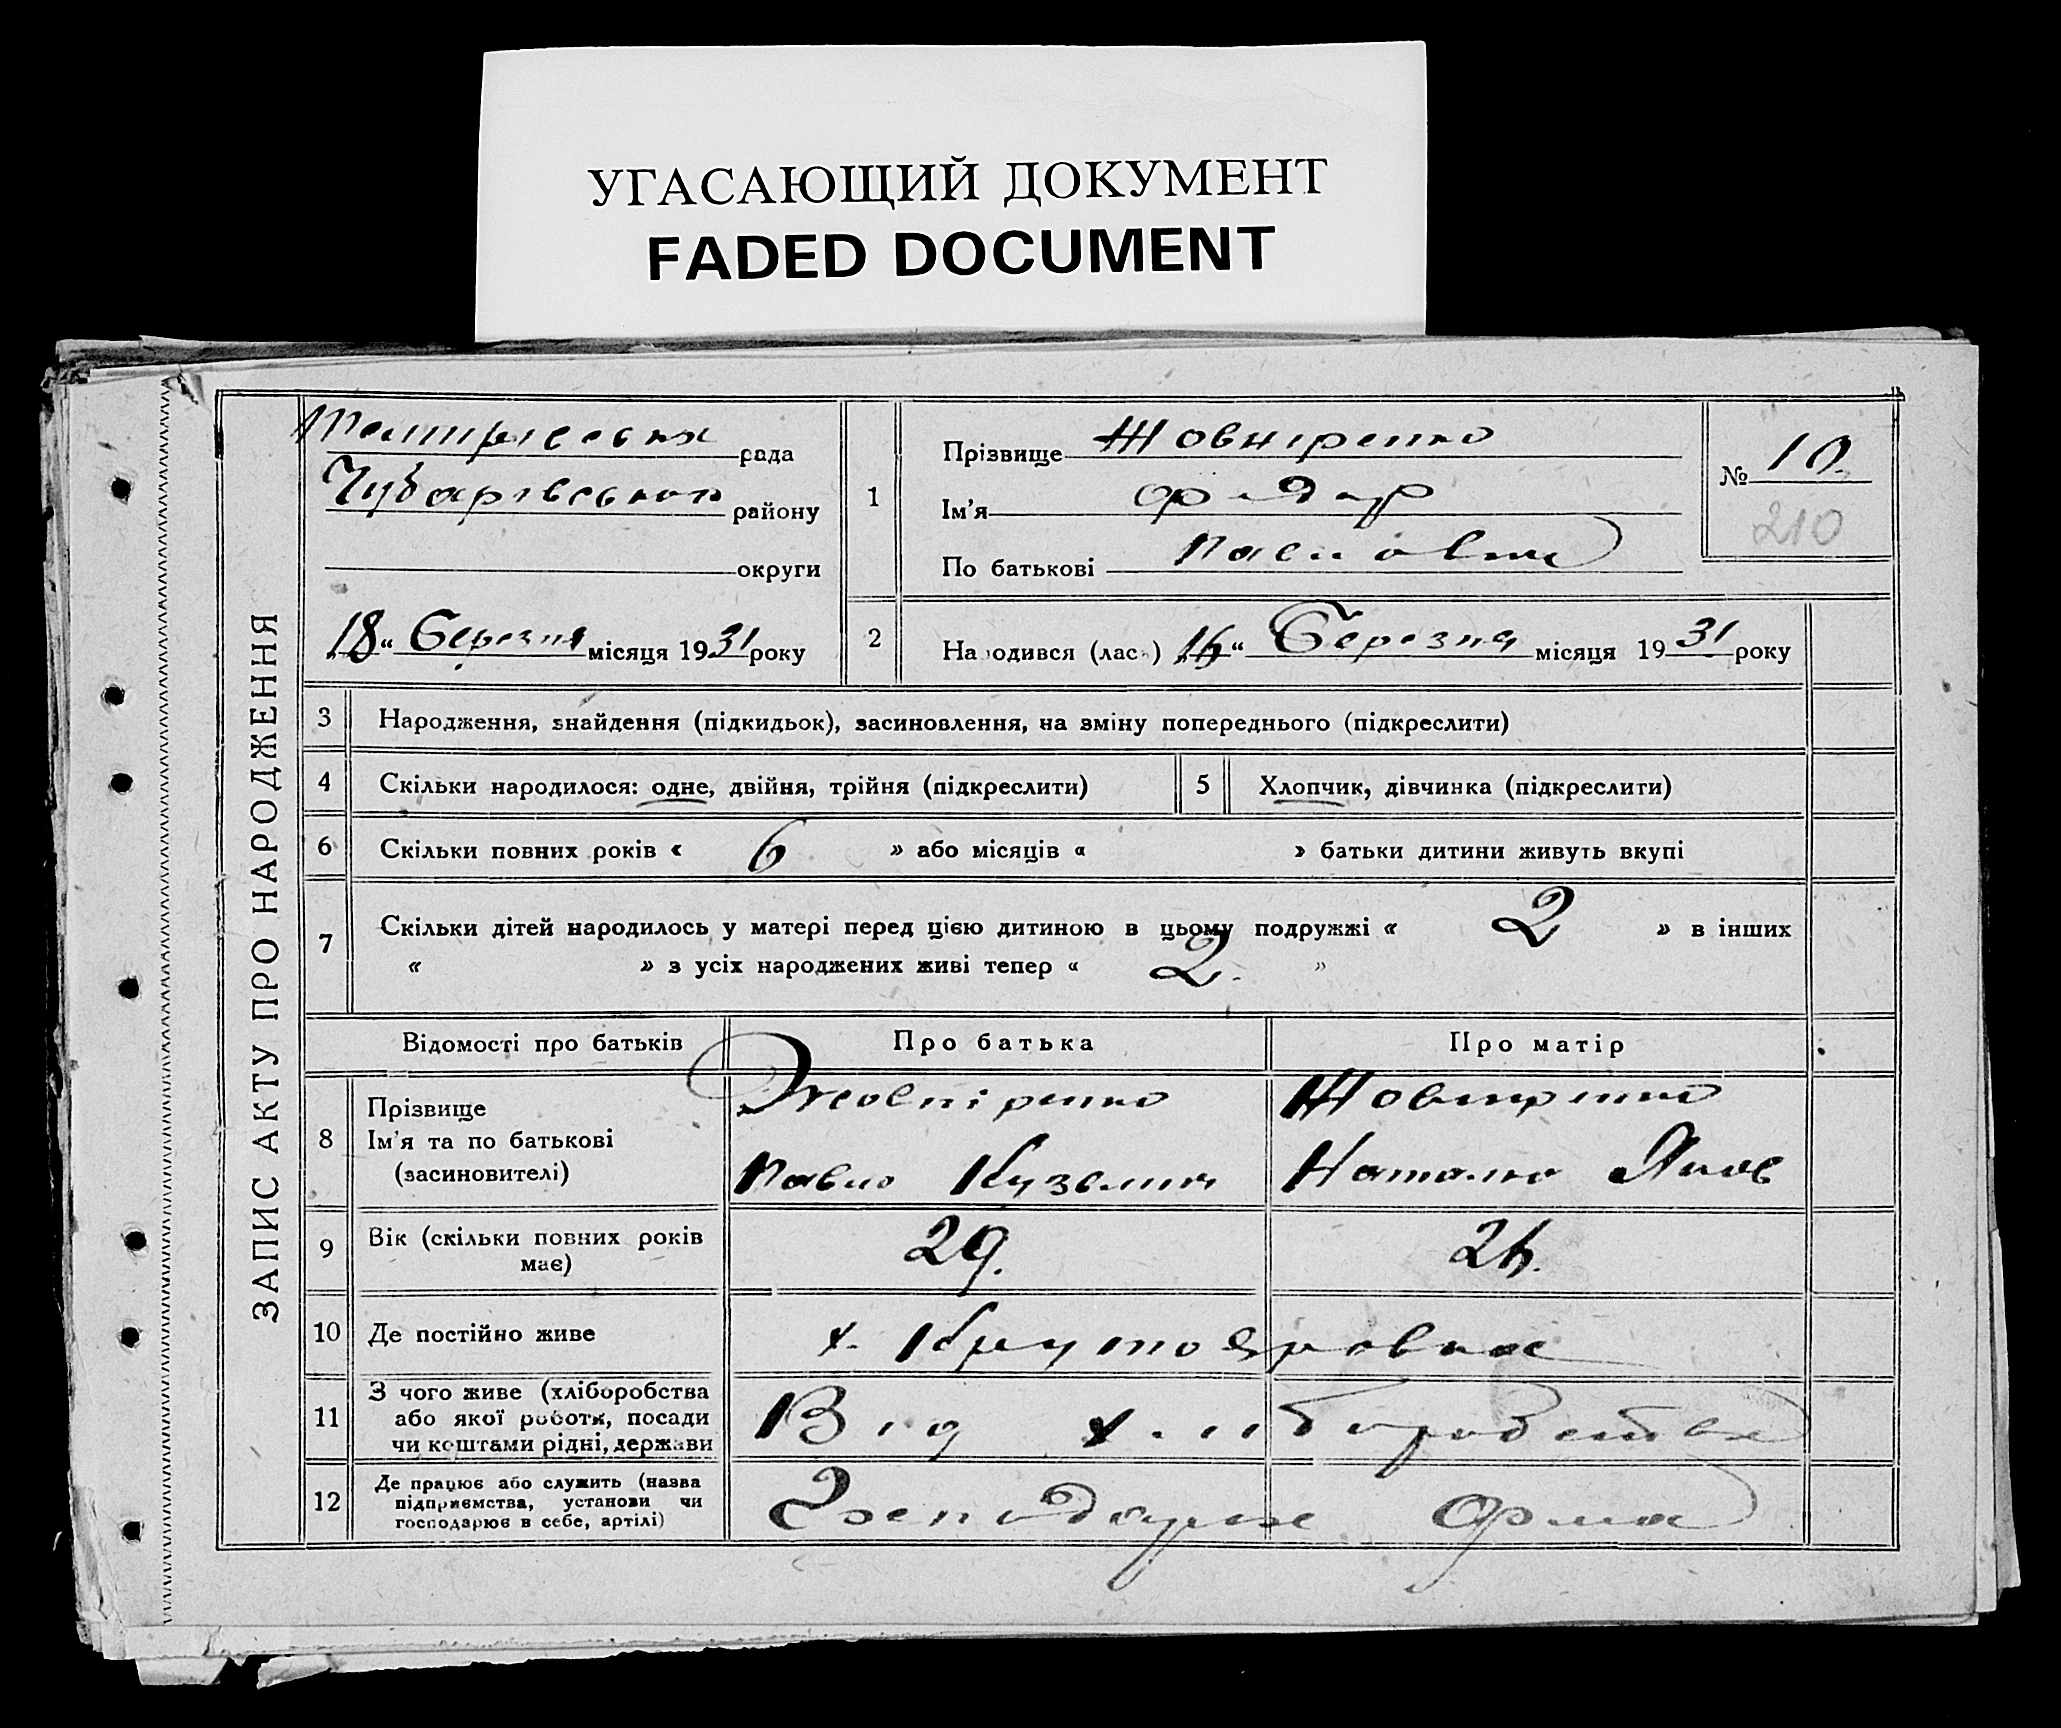 УГАСАЮЩИЙ ДОКУМЕНТ
FADED DOCUMENT
ЗАПИС АКТУ ПРО НАРОДЖЕННЯ
рада
Чубарівського району
округи
18 “ Березня місяця 1931 року
1
Прізвище Жовніренко
Ім'я Федур
По батькові Павлович
№ 10.
210
2
Народився (лась) 16 “ Березня місяця 1931 року
3 Народження, знайдення (підкидьок), засиновлення, на зміну попереднього (підкреслити)
4 Скільки народилося: одне, двійня, трійня (підкреслити) 5 Хлопчик, дівчинка (підкреслити)
6 Скільки повних років « 6 » або місяців « » батьки дитини живуть вкупі
7 Скільки дітей народилось у матері перед цією дитиною в цьому подружжі « 2 » в інших
« » з усіх народжених живі тепер « 2. »
Відомості про батьків Про батька Про матір
8 Прізвище Жовніренко Жовніренко
Ім'я та по батькові Павло Кузьмич Наталя Яков
(засиновителі)
9 Вік (скільки повних років має) 29. 26.
10 Де постійно живе х. Крутояровка
11 З чого живе (хліборобства
або якої роботи, посади
чи коштами рідні, держави
Від хліборобства
12 Де працює або служить (назва
підприємства, установи чи
господарює в себе, артілі)